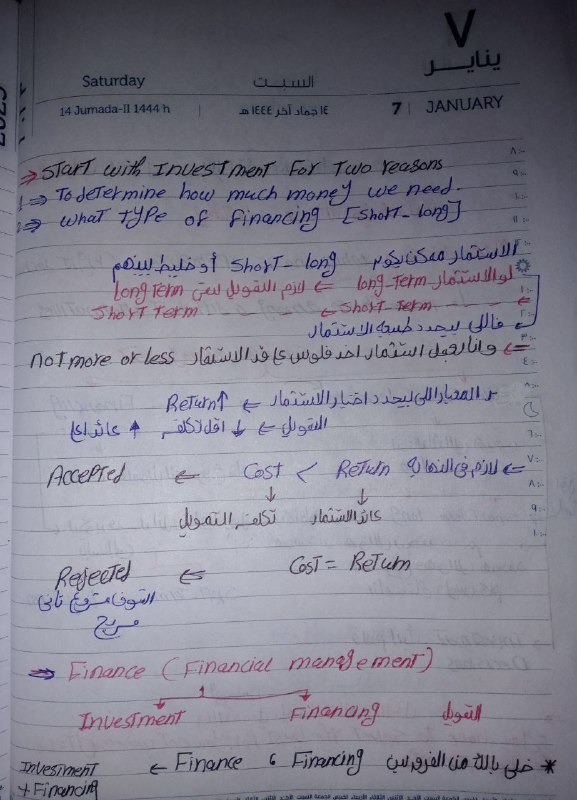 ٧
يناير
Saturday السبت
14 Jumada-II 1444 h | ١٤ جماد آخر ١٤٤٤ هـ 7 | JANUARY
⇒ Start with Investment For Two reasons
1 ⇒ To determine how much money we need.
2 ⇒ what Type of Financing [Short - long]
الاستثمار ممكن يكون Short - long أو خليط بينهم
لو الاستثمار long-Term ← لازم التمويل يبقى long Term
Short-Term ← Short Term
فاللي بيحدد طبيعة الاستثمار
⇐ وانا بعمل استثمار اخد فلوس على قد الاستثمار not more or less
المعيار اللي بيحدد اختيار الاستثمار ← Return ↑
التمويل ← ↓ اقل تكلفه ↑ عائد
← لازم فى النهاية Return > Cost ← Accepted
↓ ↓
عائد الاستثمار تكلفه التمويل
Cost = Return ← Rejected
مشروع تانى
مربح
⇒ Finance (Financial management)
Investment Financing التمويل
* خلى بالك من الفرق بين Financing و Finance ←
Investment
+ Financing